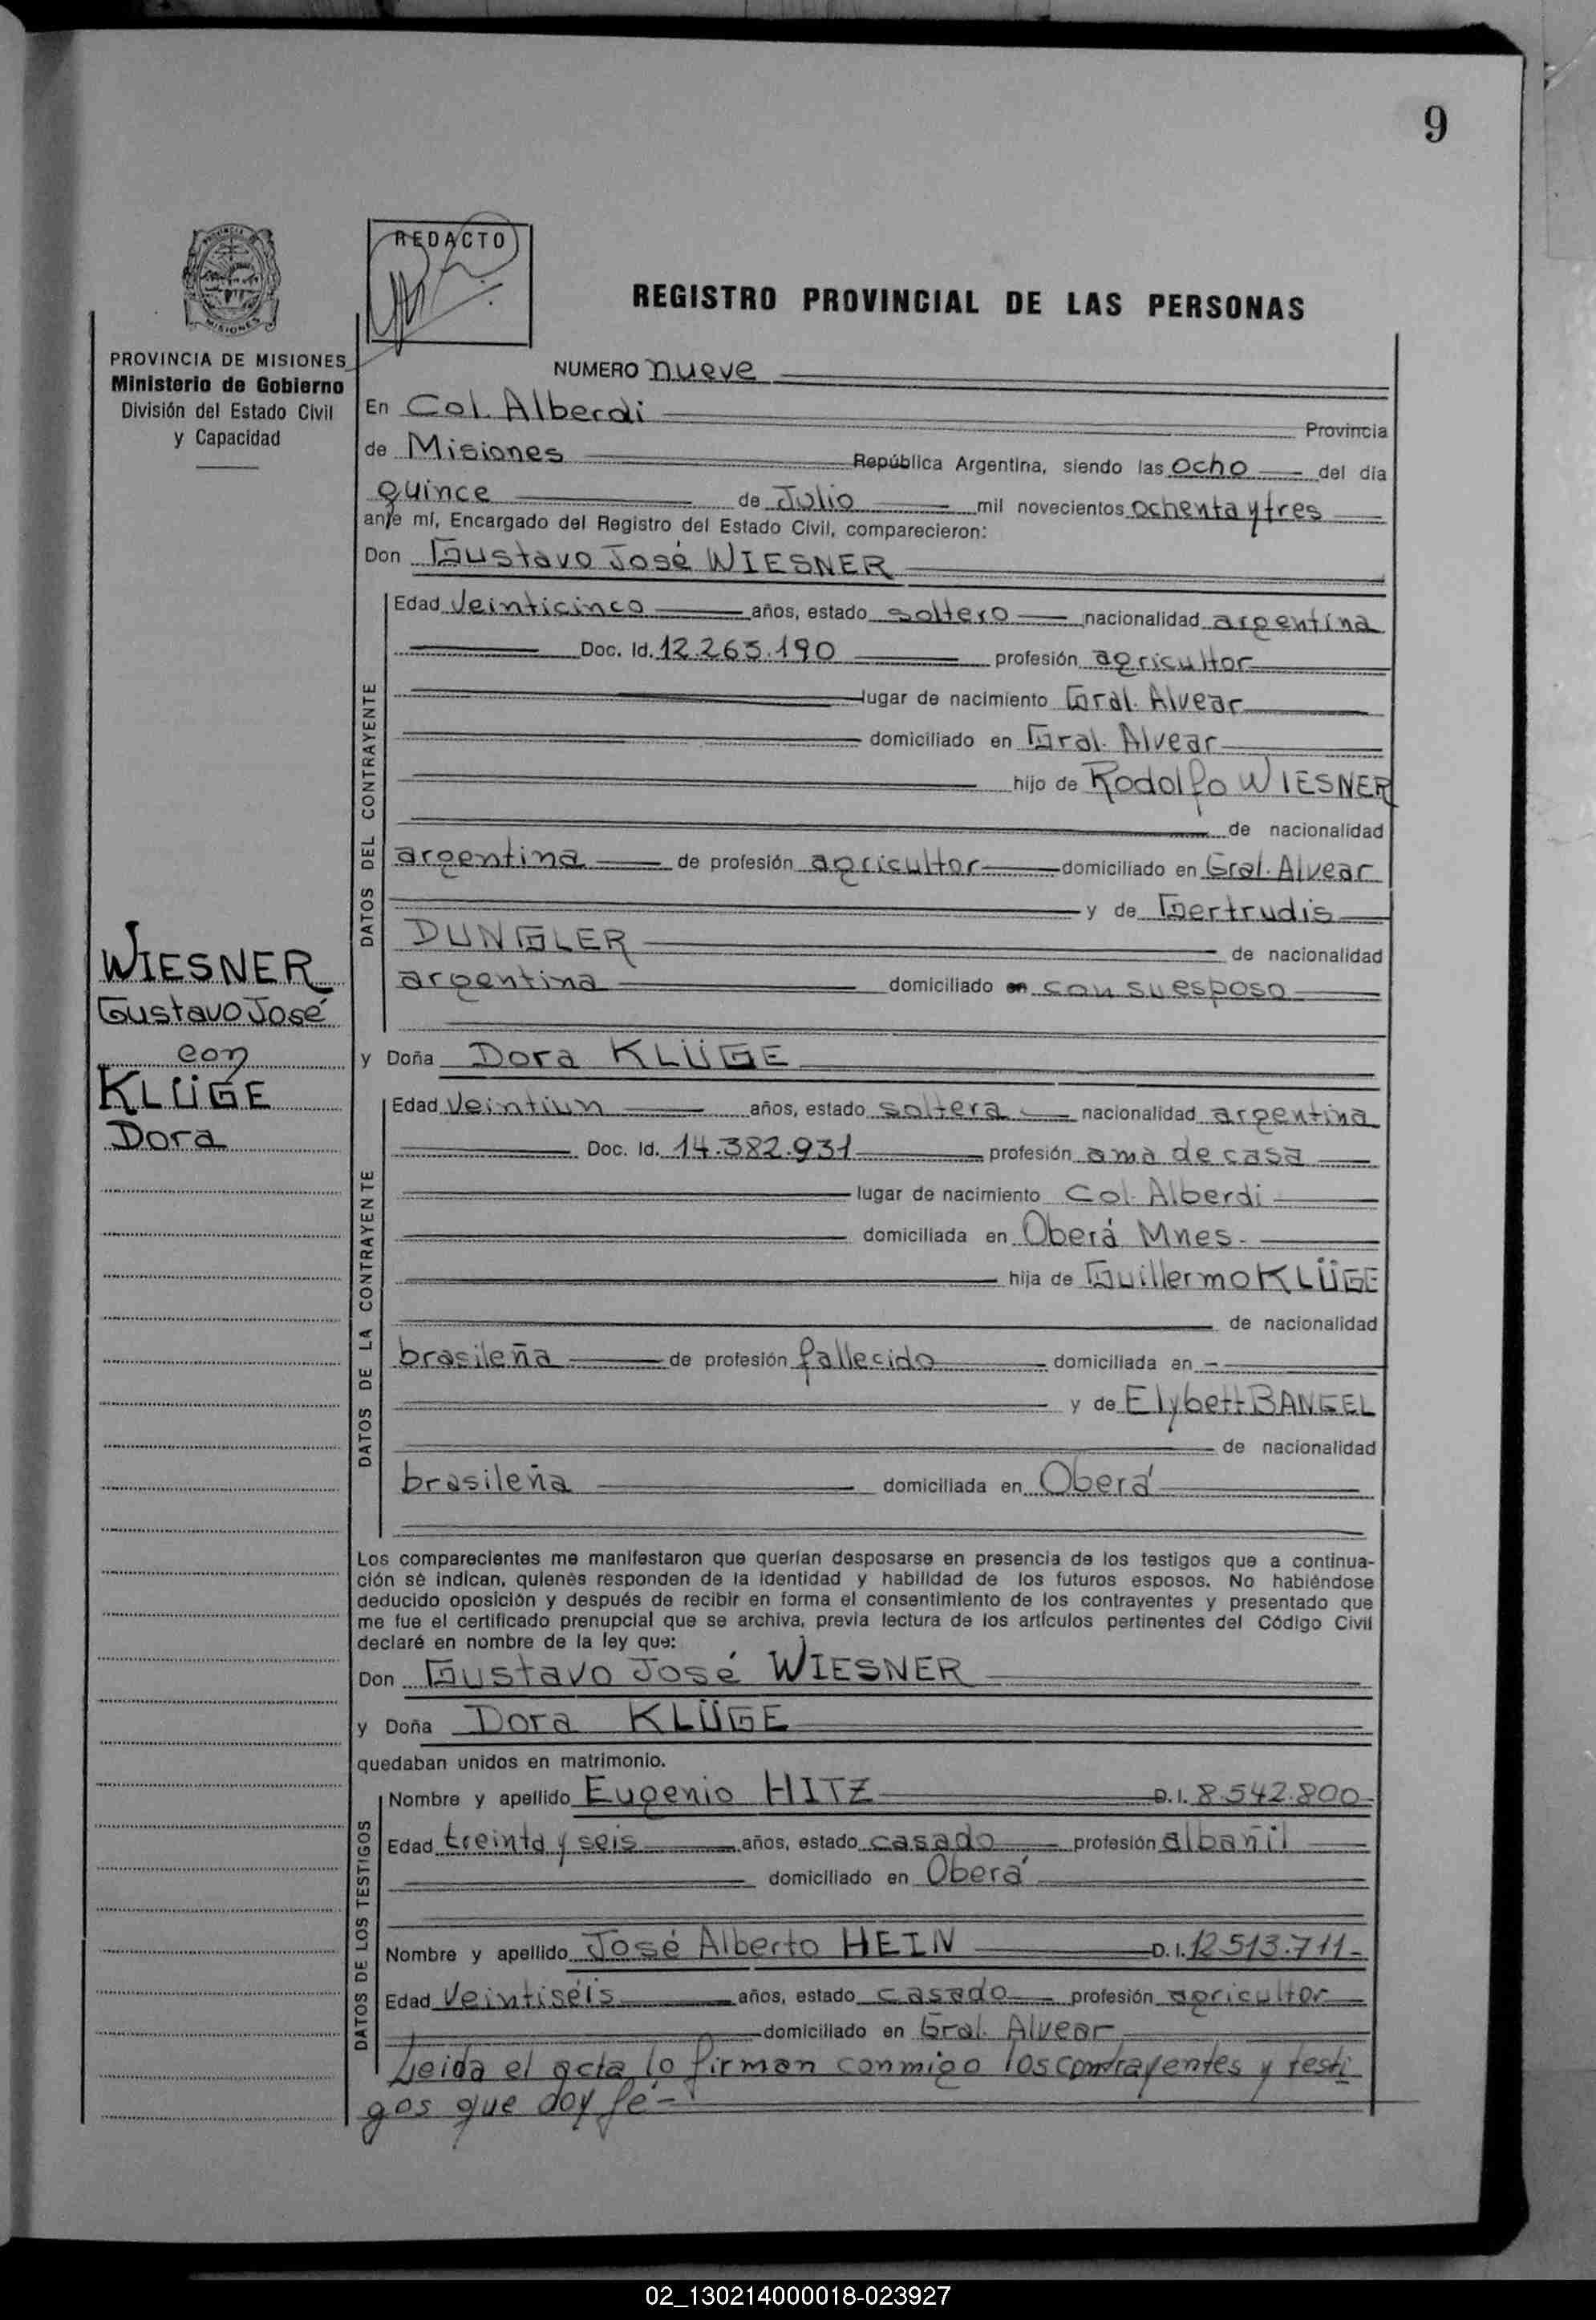 9
PROVINCIA DE MISIONES
MISIONES
PROVINCIA DE MISIONES
Ministerio de Gobierno
División del Estado Civil
y Capacidad
REDACTO
REGISTRO PROVINCIAL DE LAS PERSONAS
NUMERO nueve
En Col. Alberdi Provincia
de Misiones República Argentina, siendo las ocho del día
quince de Julio mil novecientos ochenta y tres
ante mí, Encargado del Registro del Estado Civil, comparecieron:
Don Gustavo José WIESNER
DATOS DEL CONTRAYENTE
Edad Veinticinco años, estado soltero nacionalidad argentina
Doc. Id. 12.265.190 profesión agricultor
lugar de nacimiento Gral. Alvear
domiciliado en Gral. Alvear
hijo de Rodolfo WIESNER
de nacionalidad
argentina de profesión agricultor domiciliado en Gral. Alvear
y de Gertrudis
DUNGLER de nacionalidad
argentina domiciliado en con su esposo
WIESNER
Gustavo José
con
KLÜGE
Dora
y Doña Dora KLÜGE
DATOS DE LA CONTRAYENTE
Edad Veintiun años, estado soltera nacionalidad argentina
Doc. Id. 14.382.931 profesión ama de casa
lugar de nacimiento Col. Alberdi
domiciliada en Oberá Mnes.
hija de Guillermo KLÜGE
de nacionalidad
brasileña de profesión fallecido domiciliada en -
y de Elybett BANGEL
de nacionalidad
brasileña domiciliada en Oberá
Los comparecientes me manifestaron que querían desposarse en presencia de los testigos que a continua-
ción se indican, quienes responden de la identidad y habilidad de los futuros esposos. No habiéndose
deducido oposición y después de recibir en forma el consentimiento de los contrayentes y presentado que
me fue el certificado prenupcial que se archiva, previa lectura de los artículos pertinentes del Código Civil
declaré en nombre de la ley que:
Don Gustavo José WIESNER
y Doña Dora KLÜGE
quedaban unidos en matrimonio.
DATOS DE LOS TESTIGOS
Nombre y apellido Eugenio HITZ D.I. 8.542.800-
Edad treinta y seis años, estado casado profesión albañil
domiciliado en Oberá
Nombre y apellido José Alberto HEIN D.I. 12.513.711-
Edad Veintiséis años, estado casado profesión agricultor
domiciliado en Gral. Alvear
Leida el acta lo firman conmigo los contrayentes y testi
gos que doy fé-
02_130214000018-023927